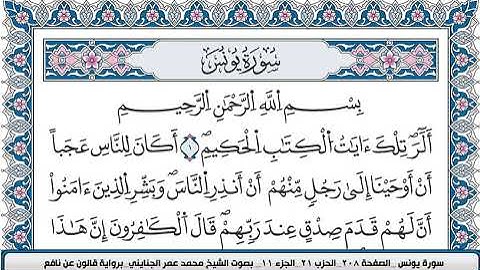 سُورَةُ يُونُسَ
بِسْمِ اِللَّهِ اِلرَّحْمَٰنِ اِلرَّحِيمِ
أَلَٓرۖ تِلْكَ ءَايَٰتُ اُلْكِتَٰبِ اِلْحَكِيمِۖ ١ أَكَانَ لِلنَّاسِ عَجَباً
أَنْ أَوْحَيْنَا إِلَىٰ رَجُلٖ مِّنْهُمْ أَنْ أَنذِرِ اِلنَّاسَۖ وَبَشِّرِ اِلذِينَ ءَامَنُواْ
أَنَّ لَهُمْ قَدَمَ صِدْقٍ عِندَ رَبِّهِمْۖ قَالَ اَلْكَٰفِرُونَ إِنَّ هَٰذَا
سورة يونس _الصفحة ٢٠٨_الحزب ٢١_الجزء ١١_ بصوت الشيخ محمد عمر الجنايني_برواية قالون عن نافع